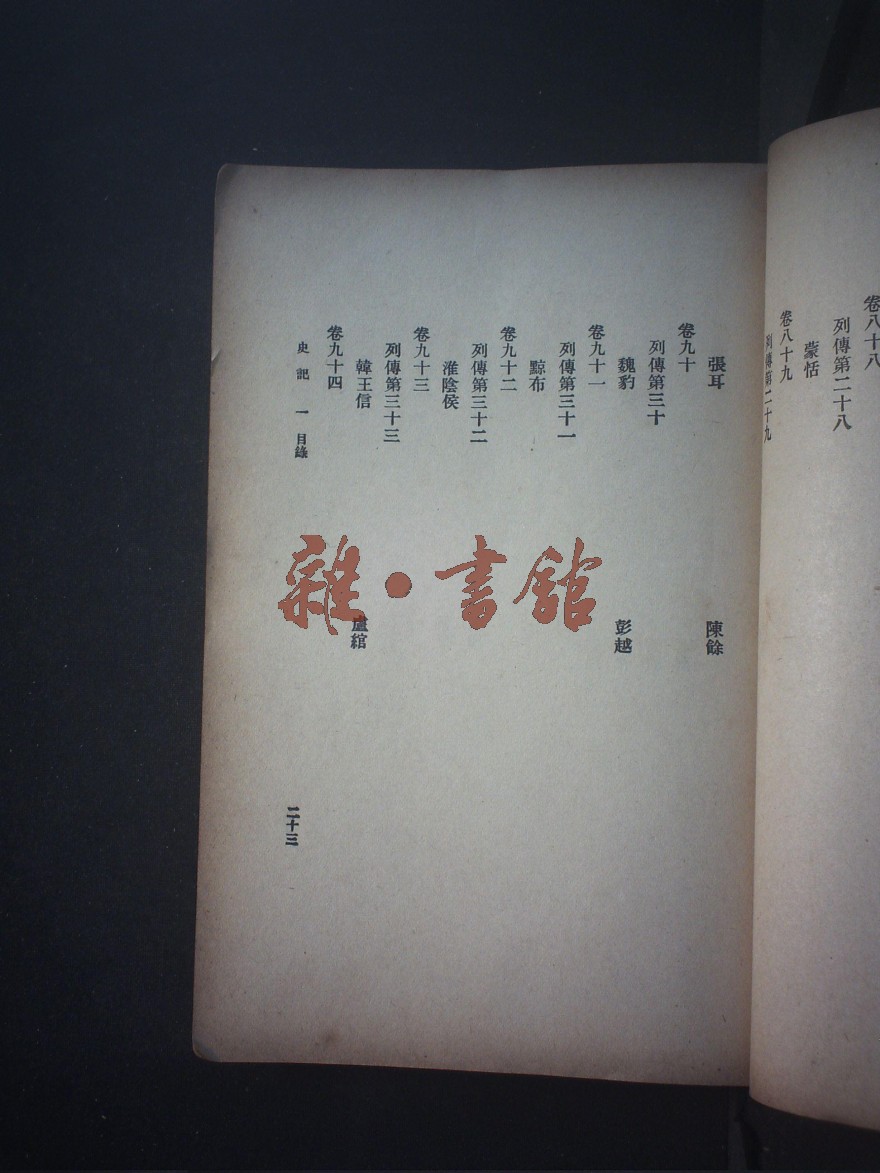 卷八十八
列傳第二十八
蒙恬
卷八十九
列傳第二十九
張耳 陳餘
卷九十
列傳第三十
魏豹 彭越
卷九十一
列傳第三十一
黥布
卷九十二
列傳第三十二
淮陰侯
卷九十三
列傳第三十三
韓王信 盧綰
卷九十四
史記 一 目錄 二十三
雜·書館